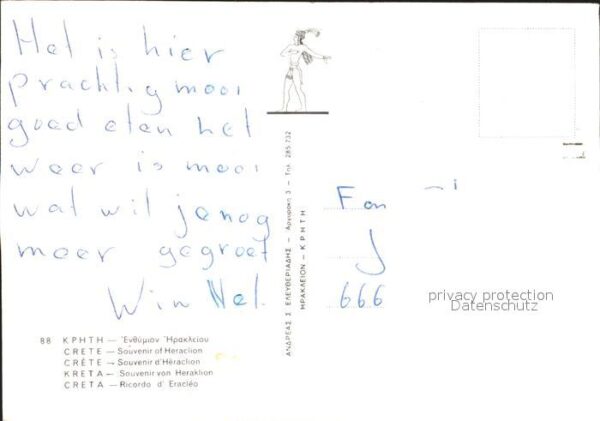 Het is hier
prachtig mooi
goed eten het
weer is mooi
wat wil je nog
meer gegroet
Win Nel.
Fam
J
666
privacy protection
Datenschutz
ΑΝΔΡΕΑΣ Σ. ΕΛΕΥΘΕΡΙΑΔΗΣ — Αργυράκη 3 — Τηλ. 285.732
ΗΡΑΚΛΕΙΟΝ - ΚΡΗΤΗ
88 ΚΡΗΤΗ — Ἐνθύμιον Ἡρακλείου
CRETE — Souvenir of Heraclion
CRÈTE — Souvenir d'Héraclion
KRETA — Souvenir von Heraklion
CRETA — Ricordo d' Eracléo